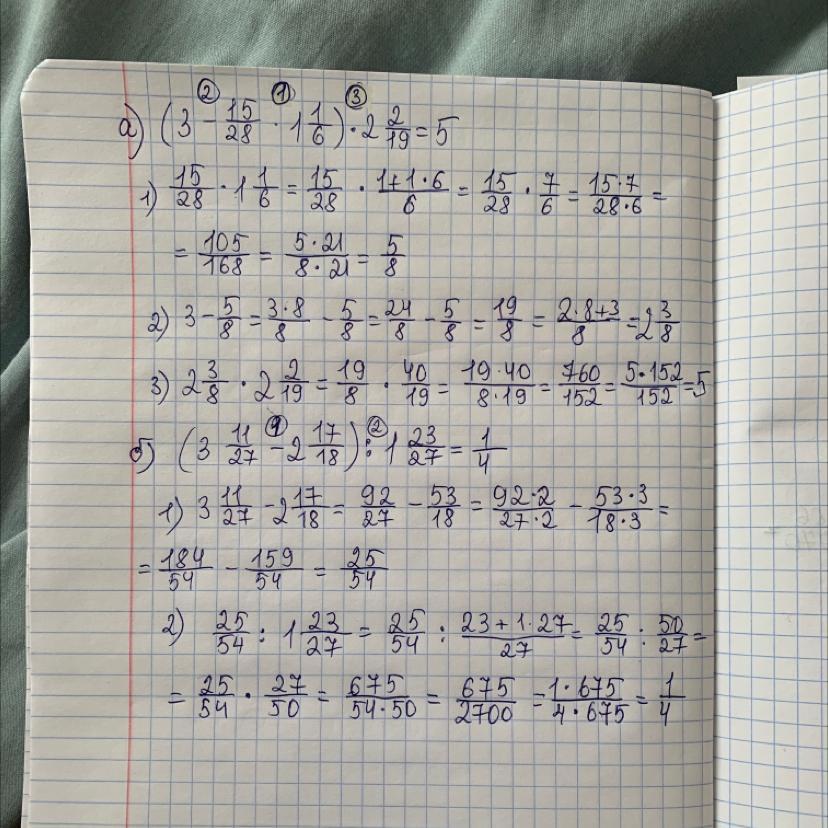 ② ① ③
а) (3 - 15/28 · 1 1/6) · 2 2/19 = 5
1) 15/28 · 1 1/6 = 15/28 · 1+1·6/6 = 15/28 · 7/6 = 15·7/28·6 =
= 105/168 = 5·21/8·21 = 5/8
2) 3 - 5/8 = 3·8/8 - 5/8 = 24/8 - 5/8 = 19/8 = 2·8+3/8 = 2 3/8
3) 2 3/8 · 2 2/19 = 19/8 · 40/19 = 19·40/8·19 = 760/152 = 5·152/152 = 5
① ②
б) (3 11/27 - 2 17/18) : 1 23/27 = 1/4
1) 3 11/27 - 2 17/18 = 92/27 - 53/18 = 92·2/27·2 - 53·3/18·3 =
= 184/54 - 159/54 = 25/54
2) 25/54 : 1 23/27 = 25/54 : 23+1·27/27 = 25/54 : 50/27 =
= 25/54 · 27/50 = 675/54·50 = 675/2700 = 1·675/4·675 = 1/4